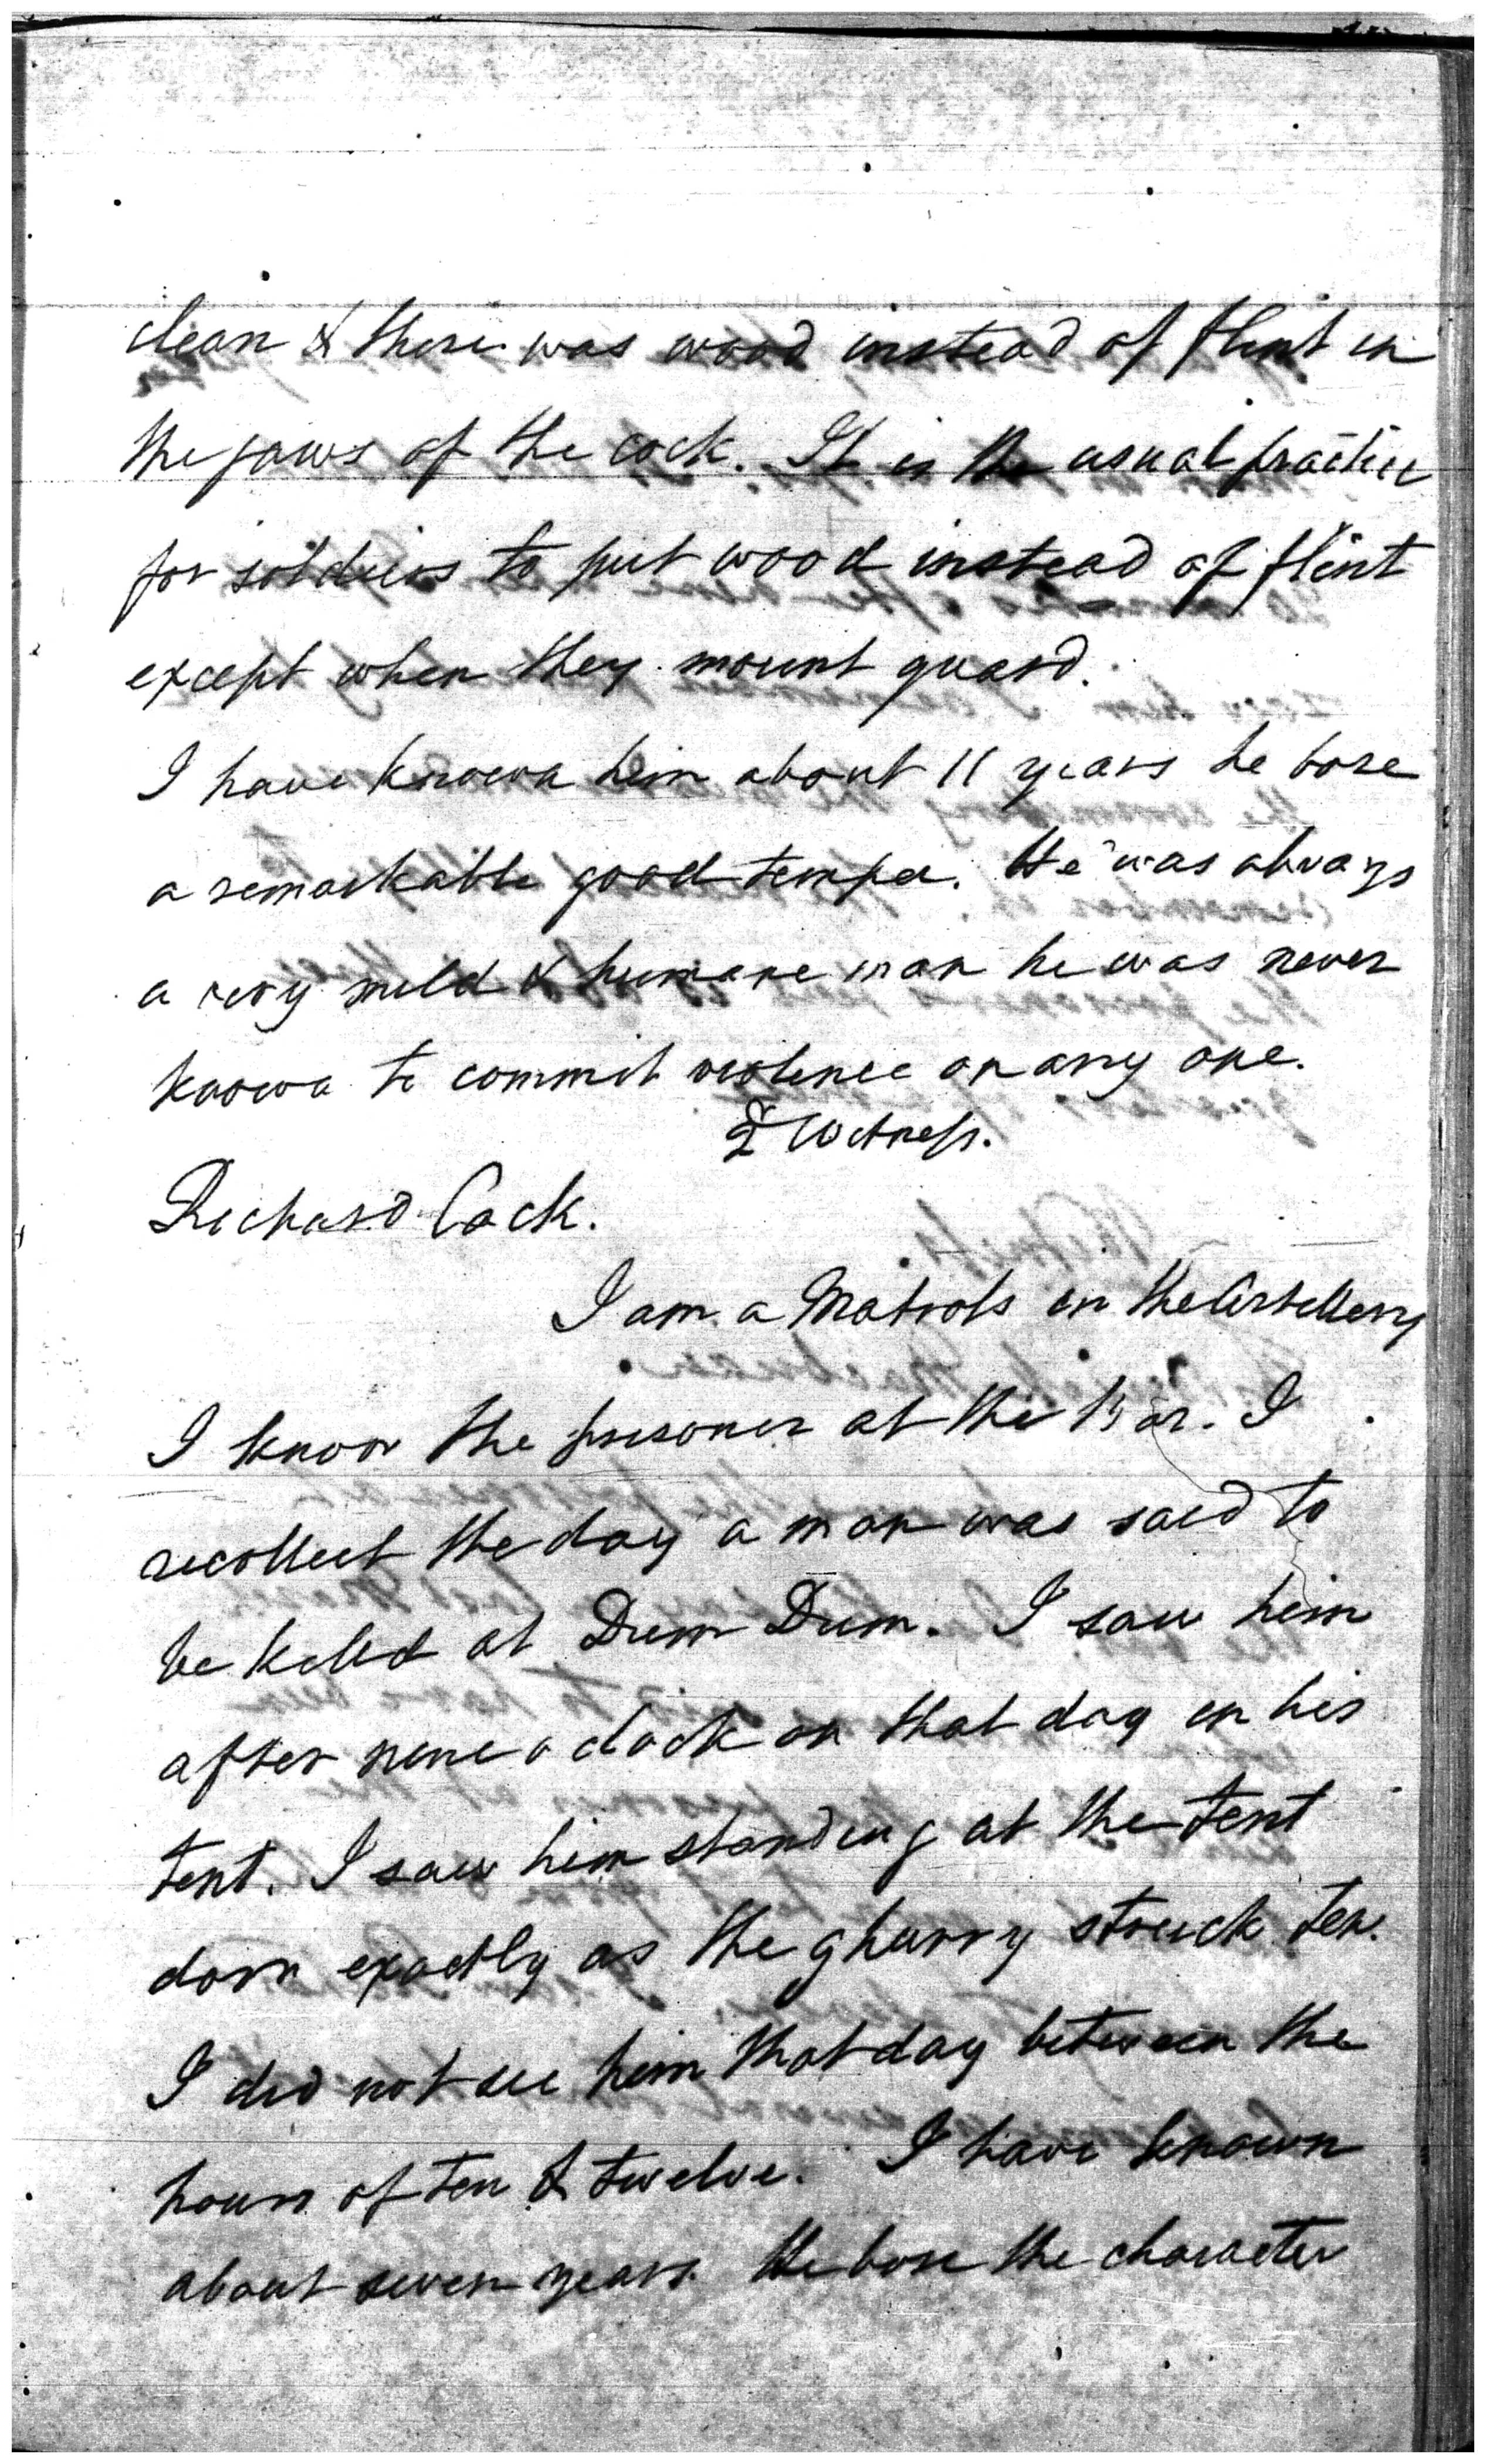 clean & there was wood instead of flint in
the jaws of the cock. It is the usual practice
for soldiers to put wood instead of flint
except when they mount guard.
I have known him about 11 years he bore
a remarkable good temper. He was always
a very mild & humane man he was never
known to commit violence on any one.
Witness.
Richard Cock.
I am a Matross in the Artillery
I know the prisoner at the Bar. I
recollect the day a man was said to
be killed at Dum Dum. I saw him
after nine o clock on that day in his
tent. I saw him standing at the tent
door exactly as the ghurry struck ten.
I did not see him that day between the
hours of ten & twelve. I have known
about seven years. He bore the character